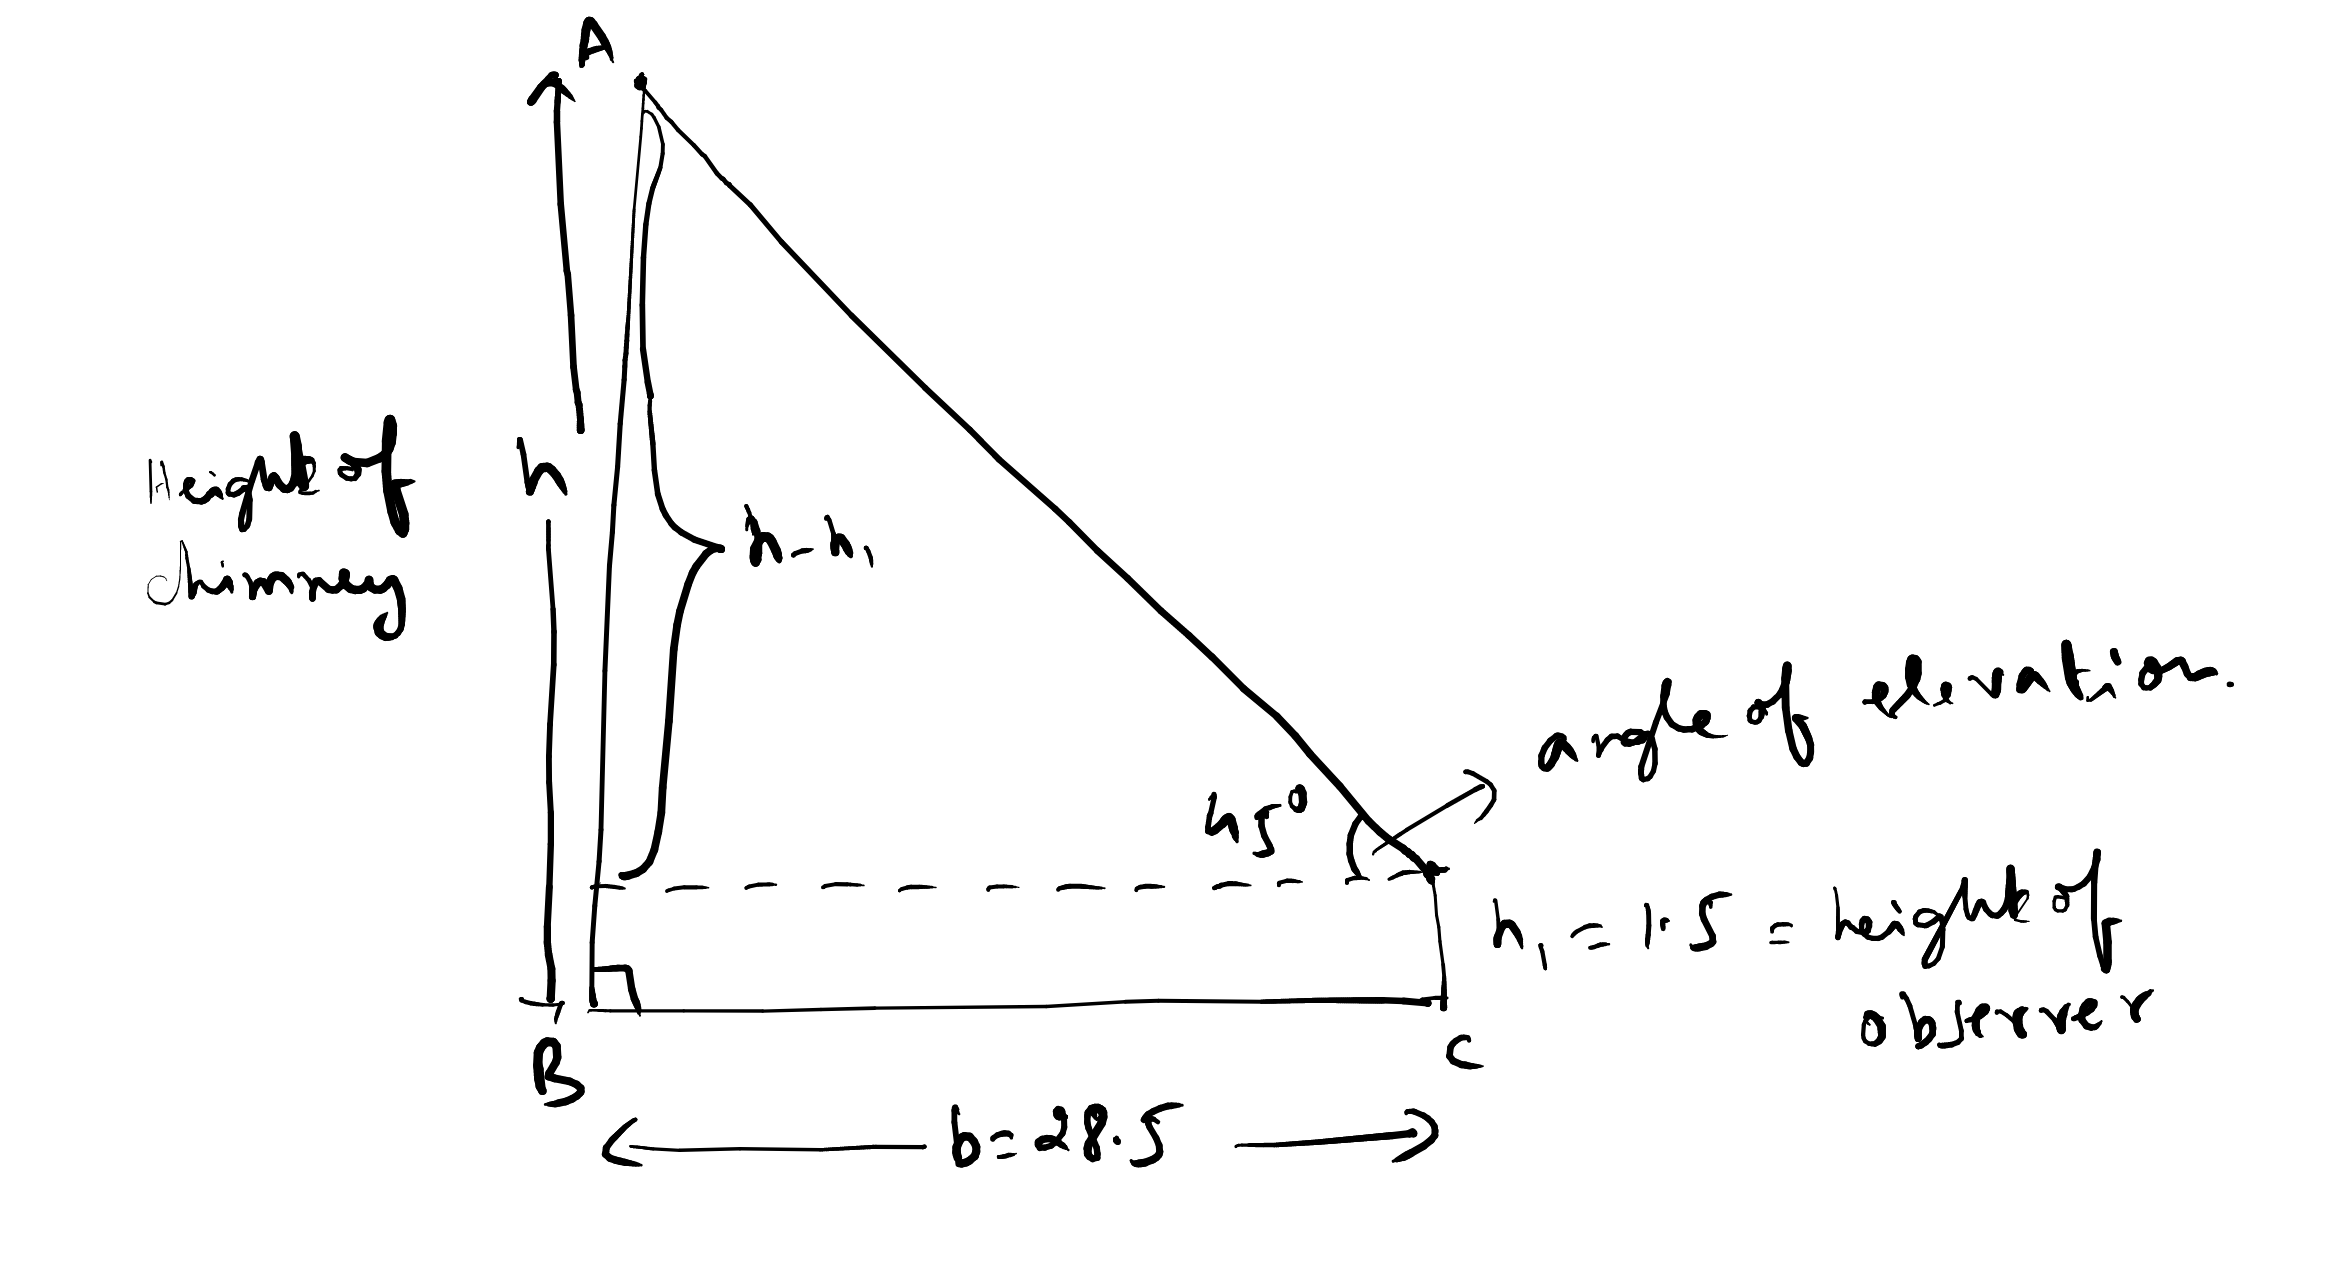 A
Height of
chimney
h
h-h₁
45°
angle of elevation.
h₁ = 1.5 = height of
observer
B
C
b=28.5